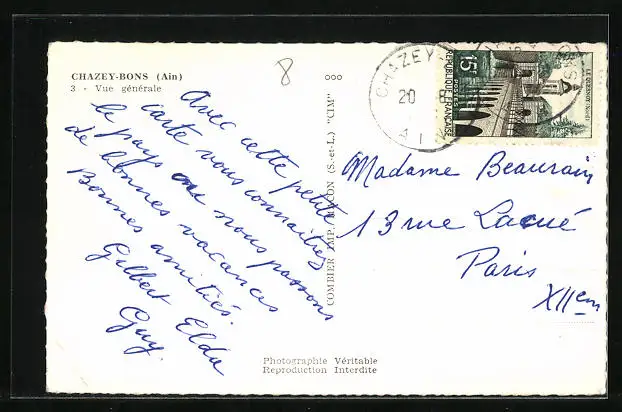 CHAZEY-BONS (Ain)
3 - Vue générale
8
Avec cette petite
carte vous connaitrez
le pays ou nous passons
de bonnes vacances
Bonnes amitiés.
Gilbert Elda
Guy.
COMBIER IMP. MACON (S.-et-L.) "CIM"
CHAZEY
20 8
AIN
15F
REPUBLIQUE FRANÇAISE
POSTES
LE QUESNOY (NORD)
Madame Beaurain
13 rue Lacué
Paris
XIIem
Photographie Véritable
Reproduction Interdite